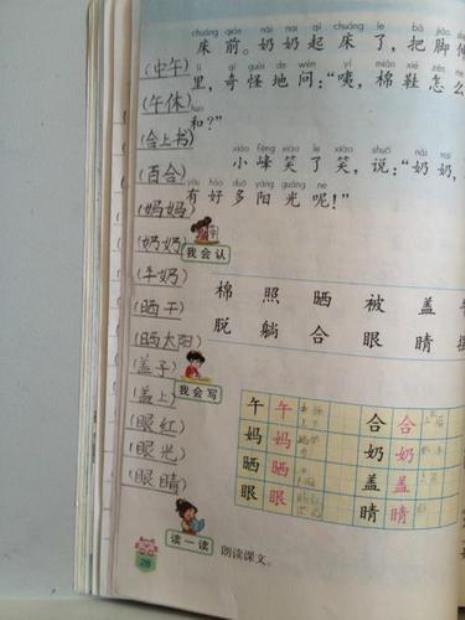 chuáng qián nǎi nai qǐ chuáng le bǎ jiǎo
床前。奶奶起床了，把脚伸
lǐ qí guài de wèn yí mián xié zěn
里，奇怪地问：“咦，棉鞋怎么
和？”
xiǎo fēng xiào le xiào shuō nǎi nai
小峰笑了笑，说：“奶奶，
yǒu hǎo duō yáng guāng ne
有好多阳光呢！”
(中午)
(午休)
(合上书)
(百合)
(妈妈)
(奶奶)
(牛奶)
(晒干)
(晒太阳)
(盖子)
(盖上)
(眼红)
(眼光)
(眼睛)
我会认
棉 照 晒 被 盖
脱 躺 合 眼 睛
我会写
午 午 合 合
妈 妈 奶 奶
晒 晒 盖 盖
眼 眼 睛 睛
读一读 朗读课文。
28